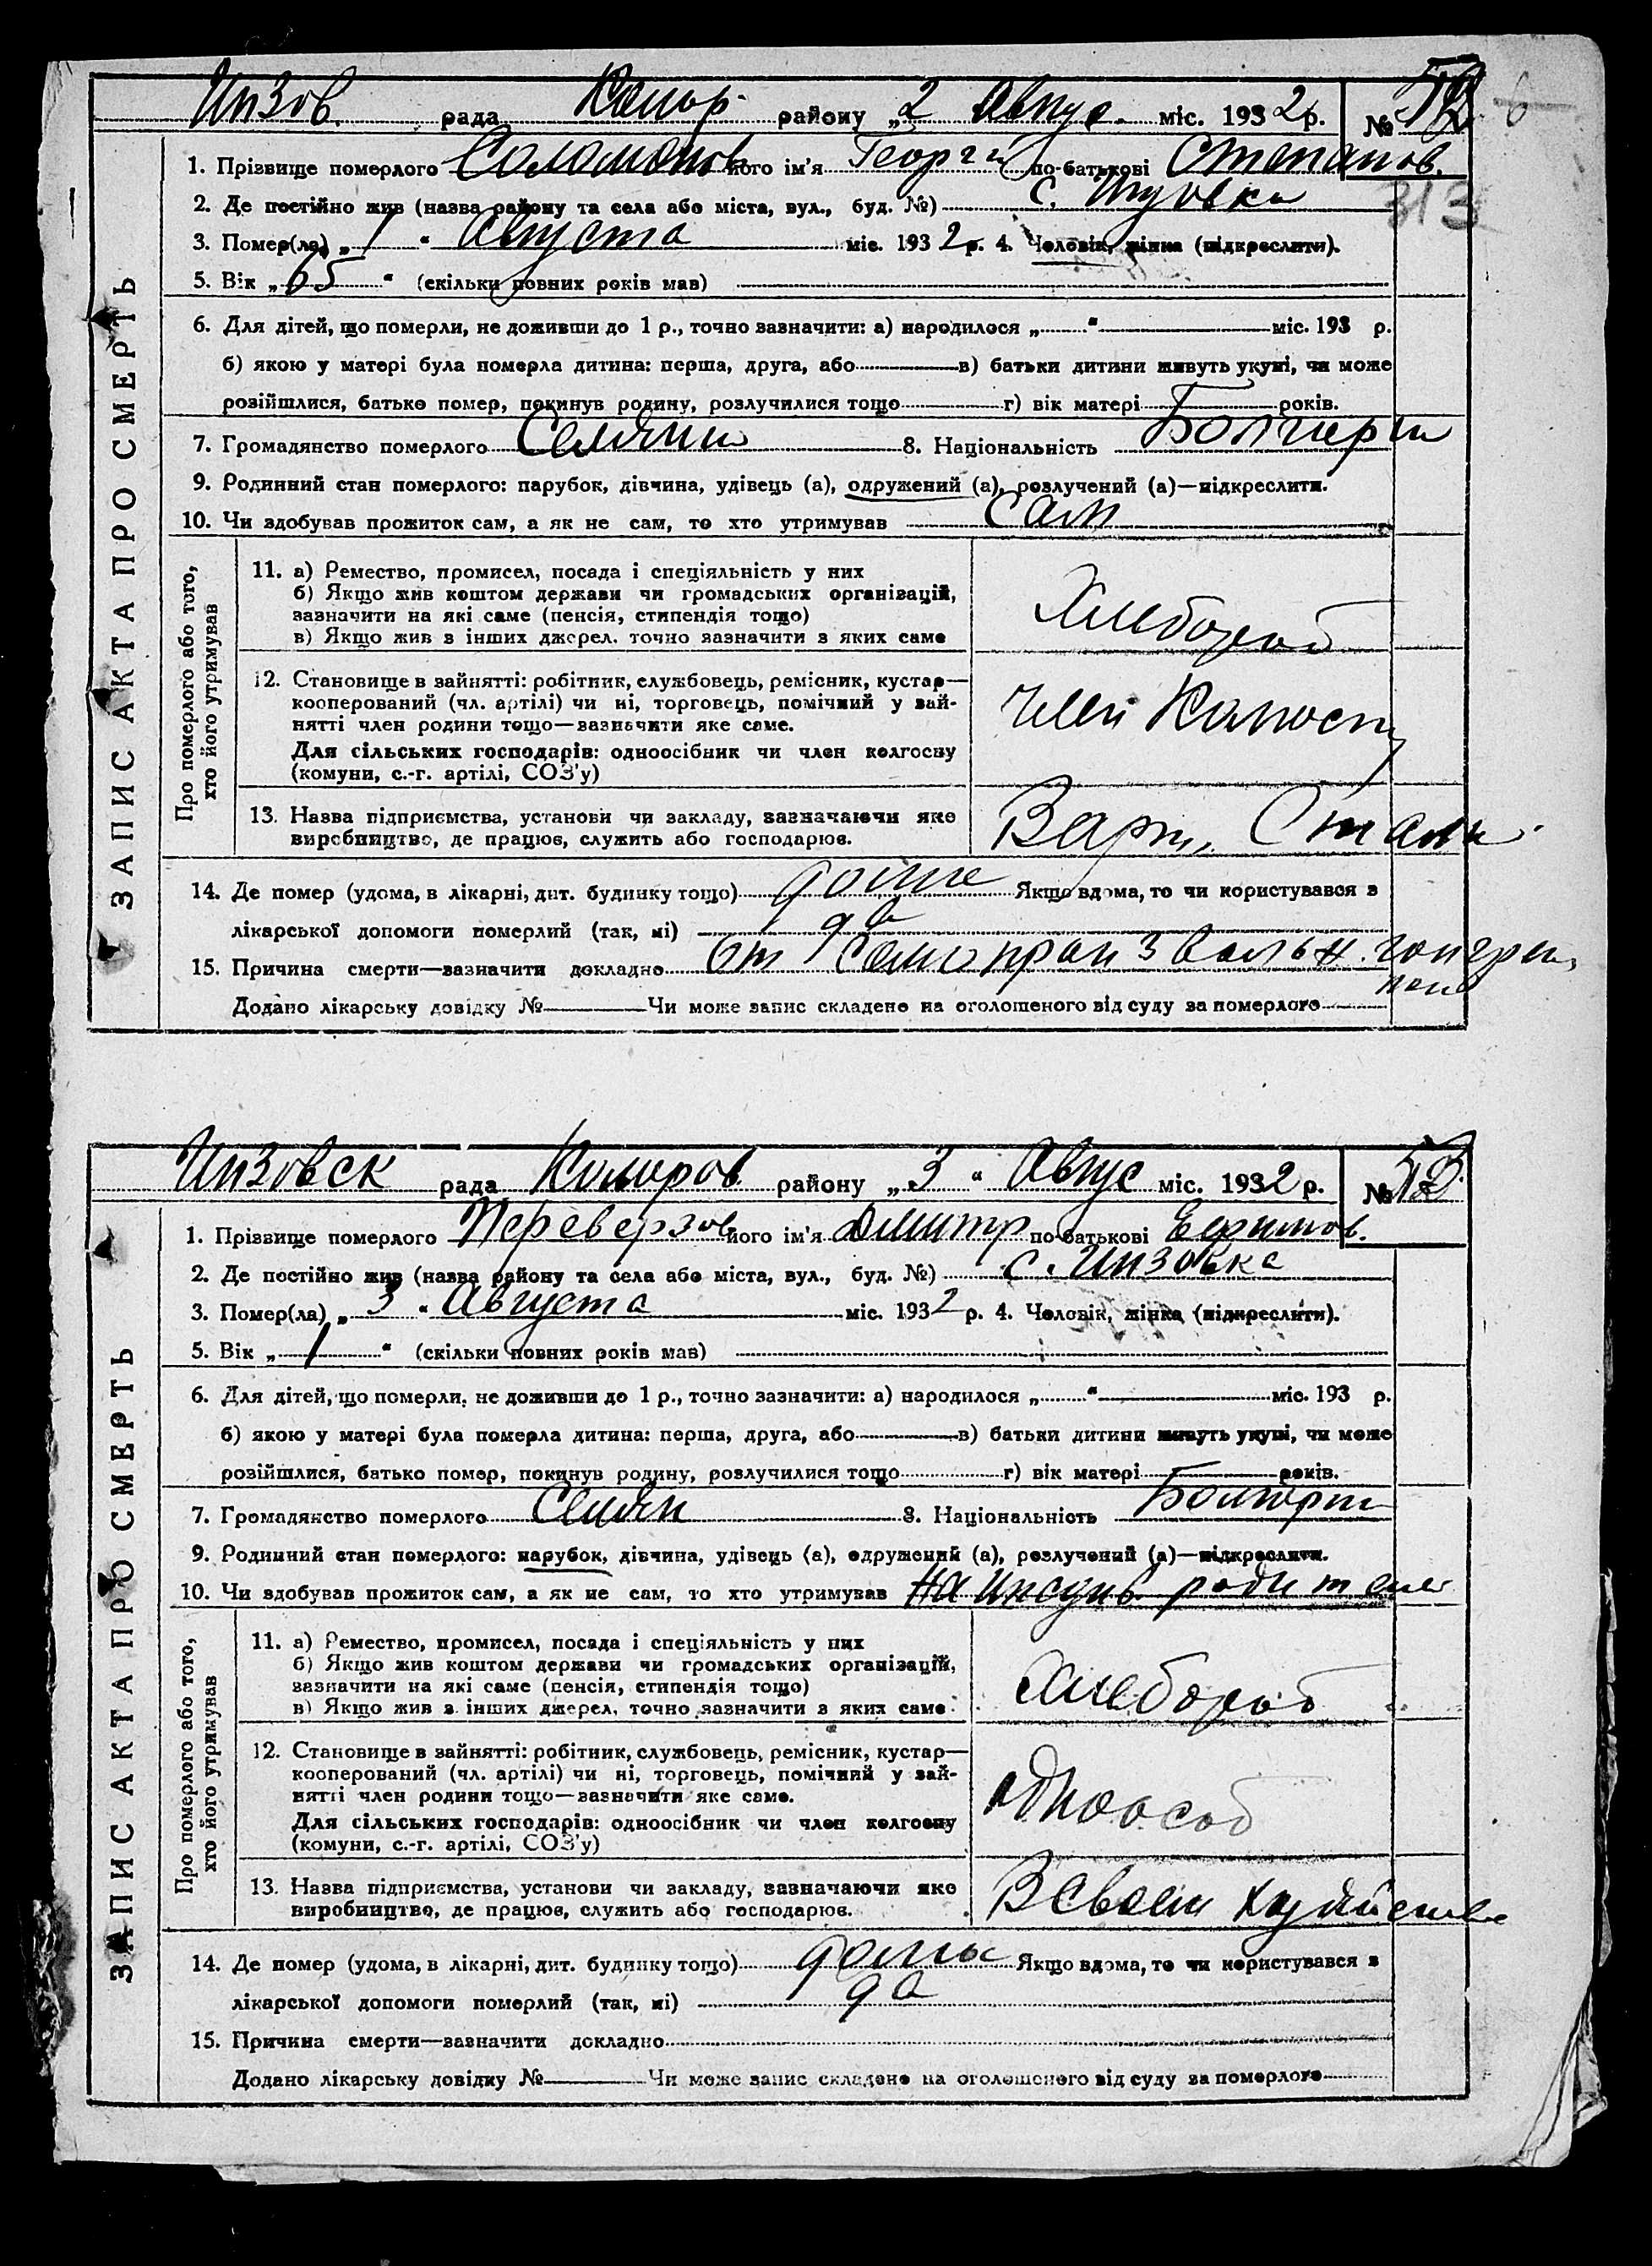 Инзов. рада Комар. району „2 Авгус. міс. 1932 р. № 52
1. Прізвище померлого Соломонов його ім'я Георги по-батькові Степанов.
313
2. Де постійно жив (назва району та села або міста, вул., буд. №) с.
3. Помер(ла) „1“ Августа міс. 1932 р. 4. Чоловік, жінка (підкреслити).
5. Вік „65“ (скільки повних років мав)
6. Для дітей, що померли, не доживши до 1 р., точно зазначити: а) народилося „ “ міс. 193 р.
б) якою у матері була померла дитина: перша, друга, або в) батьки дитини живуть укупі, чи може
розійшлися, батько помер, покинув родину, розлучилися тощо г) вік матері років.
7. Громадянство померлого 8. Національність Болгарин
9. Родинний стан померлого: парубок, дівчина, удівець (а), одружений (а), розлучений (а)—підкреслити.
10. Чи здобував прожиток сам, а як не сам, то хто утримував Сам
ЗАПИС АКТА ПРО СМЕРТЬ
Про померлого або того, хто його утримував
11. а) Ремество, промисел, посада і спеціяльність у них
б) Якщо жив коштом держави чи громадських організацій,
зазначити на які саме (пенсія, стипендія тощо)
в) Якщо жив з інших джерел, точно зазначити з яких саме
Хлебороб
12. Становище в зайнятті: робітник, службовець, ремісник, кустар—
кооперований (чл. артілі) чи ні, торговець, помічний у зай-
нятті член родини тощо—зазначити яке саме.
Для сільських господарів: одноосібник чи член колгоспу
(комуни, с.-г. артілі, СОЗ'у)
член
13. Назва підприємства, установи чи закладу, зазначаючи яке
виробництво, де працює, служить або господарює.
14. Де помер (удома, в лікарні, дит. будинку тощо) доме Якщо вдома, то чи користувався з
лікарської допомоги померлий (так, ні) да
15. Причина смерти—зазначити докладно От
Додано лікарську довідку № Чи може запис складено на оголошеного від суду за померлого
Инзовск рада Комаров. району „3“ Авгус міс. 1932 р. № 53
1. Прізвище померлого Переверзов його ім'я Дмитр по-батькові Ефимов.
2. Де постійно жив (назва району та села або міста, вул., буд. №) с. Инзовка
3. Помер(ла) „3“ Августа міс. 1932 р. 4. Чоловік, жінка (підкреслити).
5. Вік „1“ (скільки повних років мав)
6. Для дітей, що померли, не доживши до 1 р., точно зазначити: а) народилося „ “ міс. 193 р.
б) якою у матері була померла дитина: перша, друга, або в) батьки дитини живуть укупі, чи може
розійшлися, батько помер, покинув родину, розлучилися тощо г) вік матері років.
7. Громадянство померлого Селян 8. Національність Болгарин
9. Родинний стан померлого: парубок, дівчина, удівець (а), одружений (а), розлучений (а)—підкреслити.
10. Чи здобував прожиток сам, а як не сам, то хто утримував На родителе
ЗАПИС АКТА ПРО СМЕРТЬ
Про померлого або того, хто його утримував
11. а) Ремество, промисел, посада і спеціяльність у них
б) Якщо жив коштом держави чи громадських організацій,
зазначити на які саме (пенсія, стипендія тощо)
в) Якщо жив з інших джерел, точно зазначити з яких саме
Хлебороб
12. Становище в зайнятті: робітник, службовець, ремісник, кустар—
кооперований (чл. артілі) чи ні, торговець, помічний у зай-
нятті член родини тощо—зазначити яке саме.
Для сільських господарів: одноосібник чи член колгоспу
(комуни, с.-г. артілі, СОЗ'у)
одноособ
13. Назва підприємства, установи чи закладу, зазначаючи яке
виробництво, де працює, служить або господарює.
В своем
14. Де помер (удома, в лікарні, дит. будинку тощо) дома Якщо вдома, то чи користувався з
лікарської допомоги померлий (так, ні) да
15. Причина смерти—зазначити докладно
Додано лікарську довідку № Чи може запис складено на оголошеного від суду за померлого